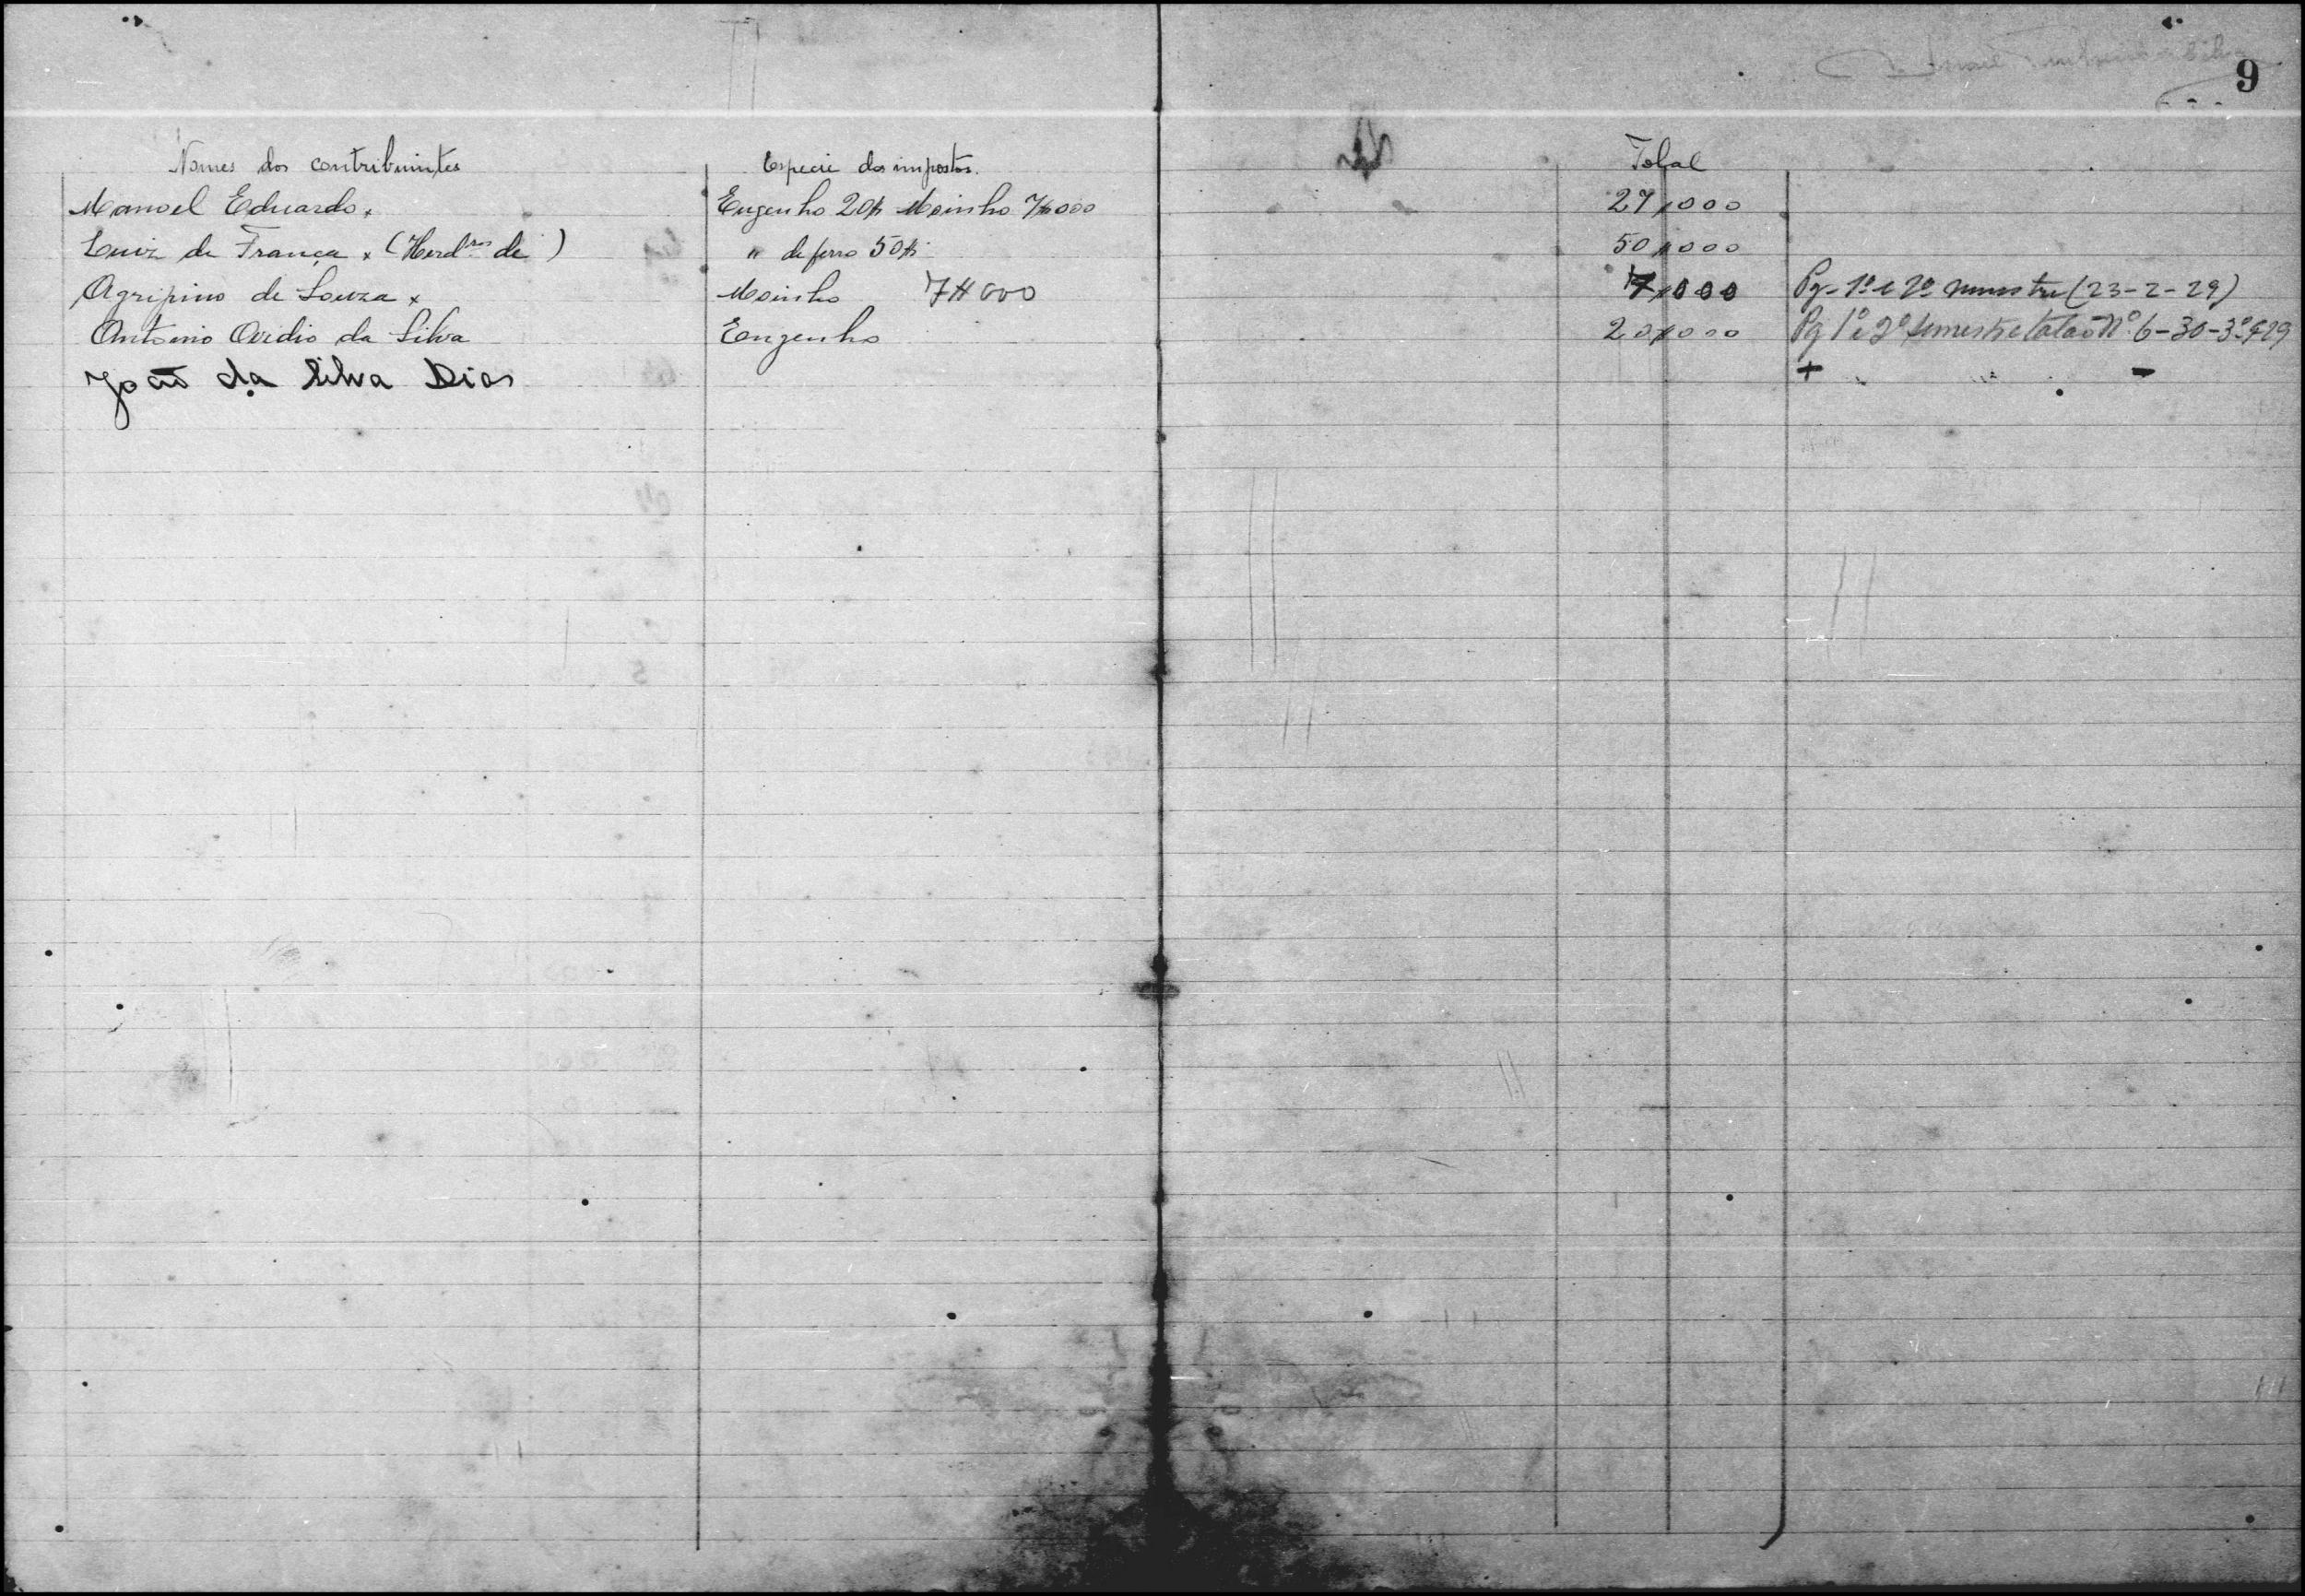 9
Nomes dos contribuintes Especie dos impostos. Total
Manoel Eduardo x Engenho 20$ Moinho 7$000 27$000
Luiz de França x (Herdros de) " de ferro 50$ 50$000
Agripino de Souza x Moinho 7$000 7$000 Pg. 1º e 2º semestre (23-2-29)
Antonio Ovidio da Silva Engenho 20$000 Pg 1º e 2º semestre talão Nº 6-30-3º-929
João da Silva Dias + -